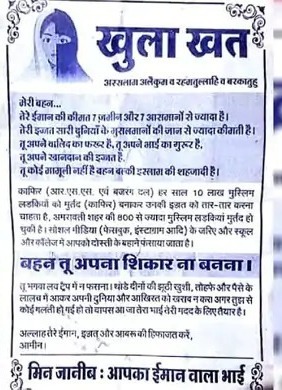 खुला खत
अस्सलाम अलैकुम व रहमतुल्लाहि व बरकातुहु
मेरी बहन...
तेरे ईमान की कीमत 7 ज़मीन और 7 आसमानों से ज्यादा है।
तेरी इज्जत सारी दुनियाँ के मुसलमानों की जान से ज्यादा कीमती है।
तू अपने वालिद का फख्र है, तू अपने भाई का गुरूर है,
तू अपने खानदान की इज्जत है,
तू कोई मामूली नहीं है बहन बल्की इस्लाम की शहजादी है।
काफिर (आर.एस.एस. एवं बजरंग दल) हर साल 10 लाख मुस्लिम
लडकियों को मुर्तद (काफिर) बनाकर उनकी इज्जत को तार-तार करना
चाहता है, अमरावती शहर की 800 से ज्यादा मुस्लिम लडकियां मुर्तद हो
चुकी है। सोशल मीडिया (फेसबुक, इंस्टाग्राम आदि) के जरिए और स्कूल
और कॉलेज में आपको दोस्ती के बहाने फंसाया जाता है।
बहन तू अपना शिकार ना बनना।
तू भगवा लव ट्रैप में न फसना। थोडे दीनों की झूठी खुशी, तोहफे और पैसे के
लालच में आकर अपनी दुनिया और आखिरत को खराब न कर। अगर तुझ से
कोई गलती हो गई हो तो वापस आ जा तेरा भाई तेरी मदद के लिए तैयार है।
अल्लाह तेरे ईमान, इज्जत और आबरू की हिफाजत करें,
आमीन।
मिन जानीब : आपका ईमान वाला भाई